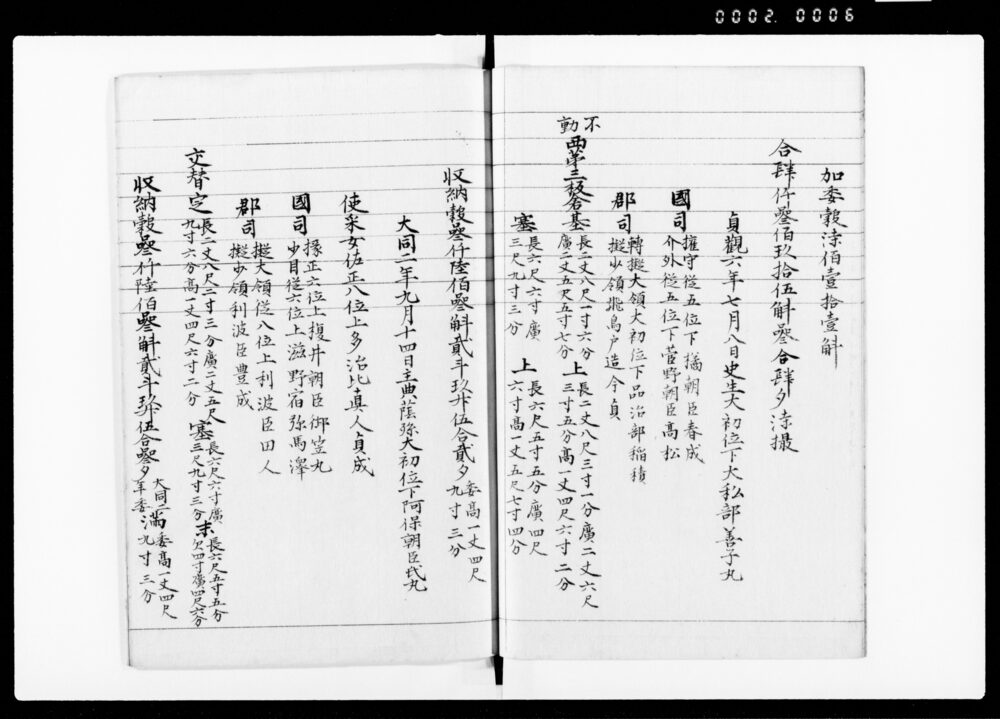 0002.0006
加委穀漆佰壹拾壹斛
合肆仟叄佰玖拾伍斛叄合肆夕漆撮
貞觀六年七月八日史生大初位下大私部善子丸
國司 擁守従五位下橘朝臣春成
介外従五位下菅野朝臣高松
郡司 轉擬大領大初位下品治部稲積
擬少領飛鳥戸造今貞
不動
西第三板倉基 長二丈八尺一寸六分
廣二丈五尺五寸七分
上 長二丈八尺三寸一分廣二丈六尺
三寸五分高一丈四尺六寸二分
塞 長六尺六寸廣
三尺九寸三分
上 長六尺五寸五分廣四尺
六寸高一丈五尺七寸四分
収納穀叄仟陸佰叄斛貳斗玖升伍合貳夕 委高一丈四尺
九寸三分
大同二年九月十四日主典蔭孫大初位下阿保朝臣氐丸
使采女佐正八位上多治比真人貞成
國司 掾正六位上榎井朝臣御笠丸
少目従六位上滋野宿祢馬澤
郡司 擬大領従八位上利波臣田人
擬少領利波臣豊成
交替定 長二丈八尺二寸三分廣二丈五尺
九寸六分高一丈四尺六寸二分
塞 長六尺六寸廣
三尺九寸三分
末 長六尺五寸五分
欠四寸廣四尺六分
収納穀叄仟陸佰叄斛貳斗玖升伍合叄夕 大同二
年委
満 委高一丈四尺
九寸三分